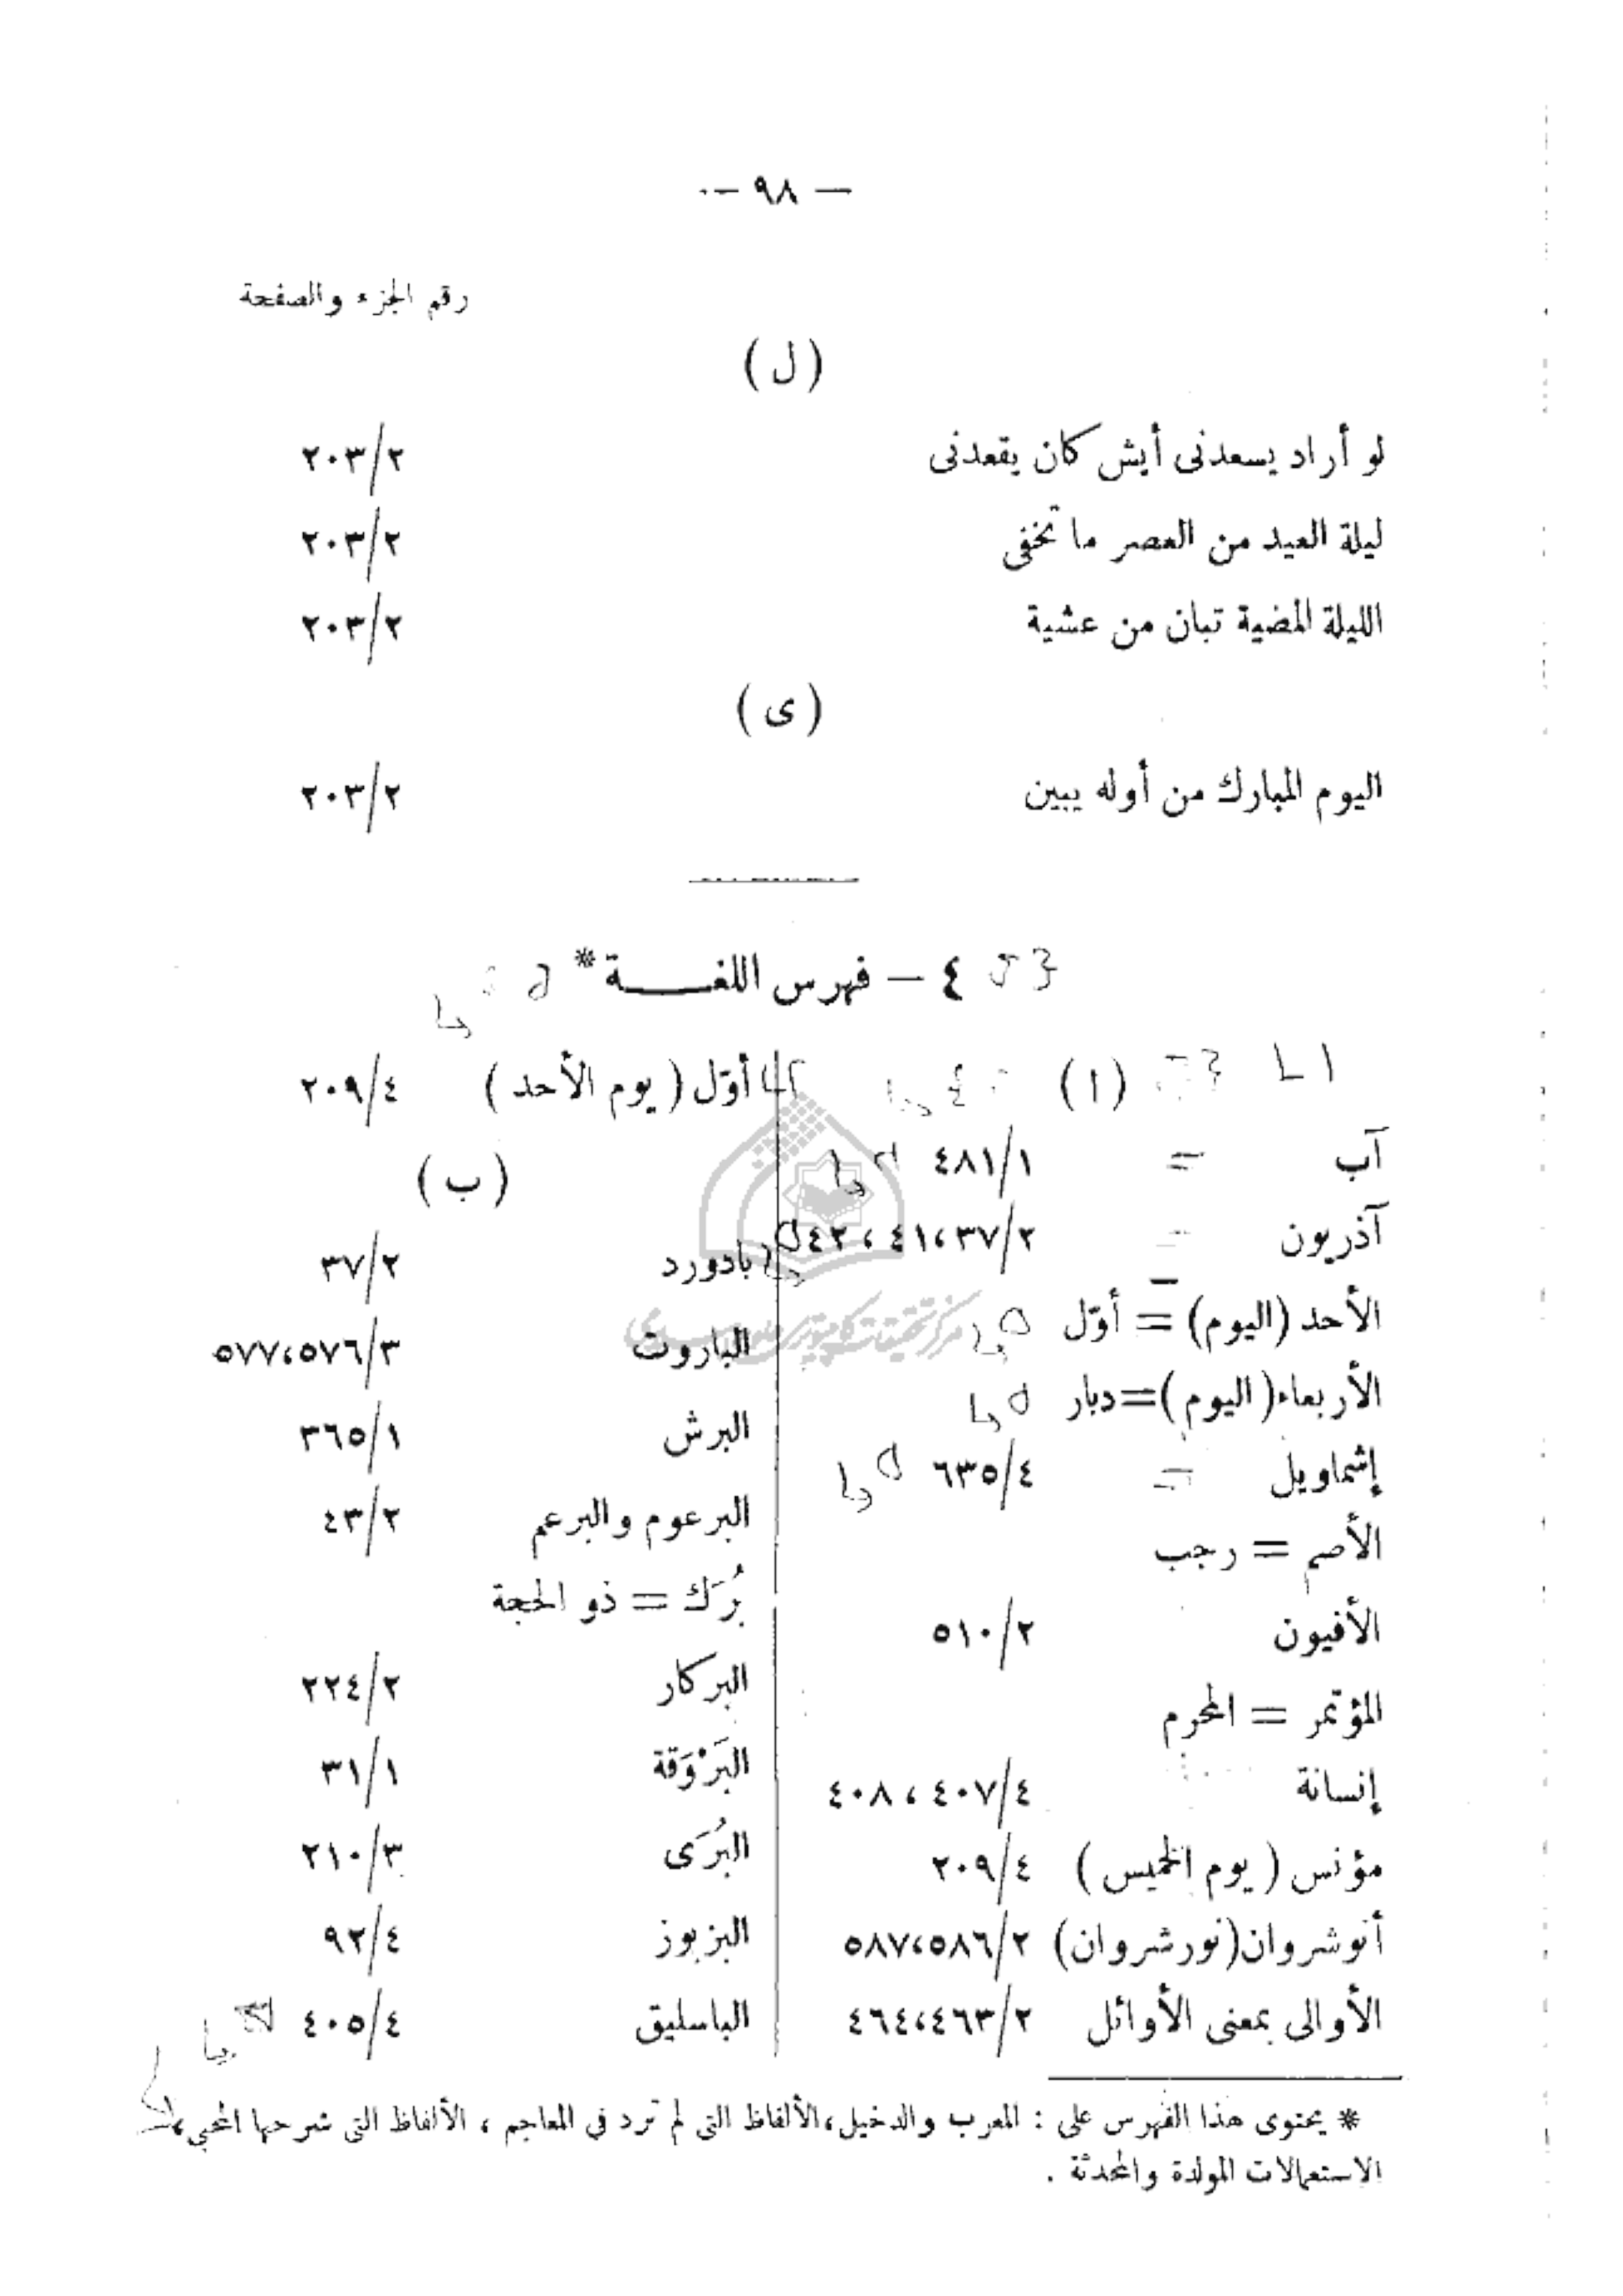 — ٩٨ —
رقم الجزء والصفحة
( ل )
لو أراد يسعدنى أيش كان يقعدنى ٢٠٣/٢
ليلة العيد من العصر ما تخفى ٢٠٣/٢
الليلة المضية تبان من عشية ٢٠٣/٢
( ى )
اليوم المبارك من أوله يبين ٢٠٣/٢
٤ – فهرس اللغـــــة*
( ا )
آب = ٤٨١/١
آذريون = ٤٢،٤١،٣٧/٢
الأحد (اليوم) = أوّل
الأربعاء (اليوم) = دبار
إشماويل = ٦٣٥/٤
الأصم = رجب
الأفيون ٥١٠/٢
المؤتمر = المحرم
إنسانة ٤٠٨،٤٠٧/٤
مؤنس ( يوم الخميس ) ٢٠٩/٤
أنوشروان (نورشروان) ٥٨٧،٥٨٦/٢
الأوالى بمعنى الأوائل ٤٦٤،٤٦٣/٢
أوّل ( يوم الأحد ) ٢٠٩/٤
( ب )
بادورد ٣٧/٢
الباروت ٥٧٧،٥٧٦/٣
البرش ٣٦٥/١
البرعوم والبرعم ٤٣/٢
بُرَك = ذو الحجة
البركار ٢٢٤/٢
البَرْوَقة ٣١/١
البُرَى ٢١٠/٣
البزبوز ٩٢/٤
الباسليق ٤٠٥/٤
* يحتوى هذا الفهرس على : المعرب والدخيل ، الألفاظ التى لم ترد في المعاجم ، الألفاظ التى شرحها المحبي ،
الاستعمالات المولدة والمحدثة .